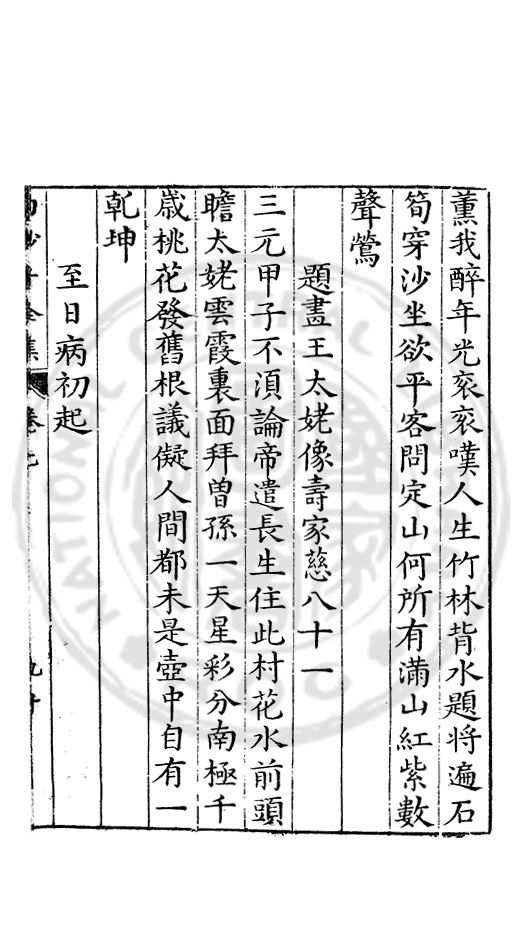 薰我醉年光衮衮嘆人生竹林背水題將遍石
筍穿沙坐欲平客問定山何所有滿山紅紫數
聲鶯
題畫王太姥像壽家慈八十一
三元甲子不須論帝遣長生住此村花水前頭
瞻太姥雲霞裏面拜曾孫一天星彩分南極千
歲桃花發舊根議儗人間都未是壺中自有一
乾坤
至日病初起